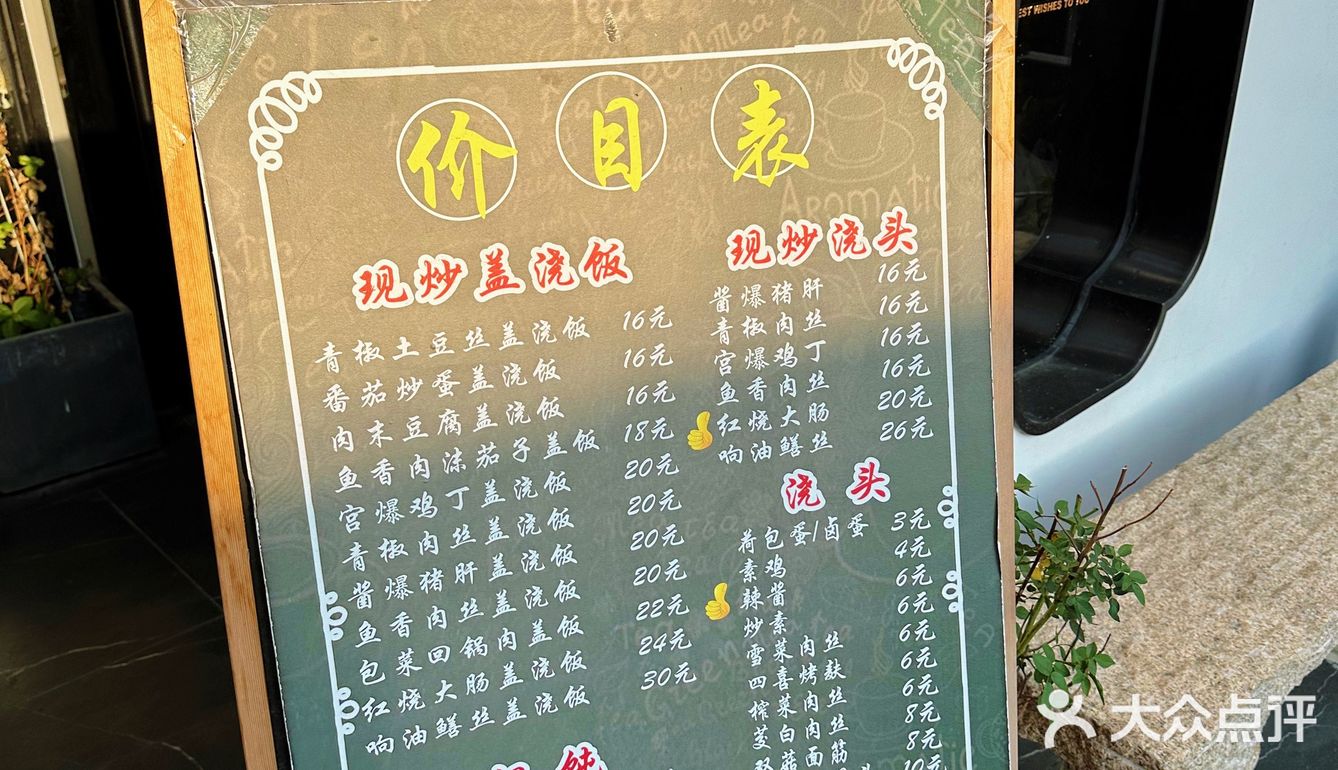 价目表
现炒盖浇饭
青椒土豆丝盖浇饭 16元
番茄炒蛋盖浇饭 16元
肉末豆腐盖浇饭 16元
鱼香肉沫茄子盖饭 18元
宫爆鸡丁盖浇饭 20元
青椒肉丝盖浇饭 20元
酱爆猪肝盖浇饭 20元
鱼香肉丝盖浇饭 20元
包菜回锅肉盖饭 22元
红烧大肠盖浇饭 24元
响油鳝丝盖浇饭 30元
现炒浇头
酱爆猪肝 16元
青椒肉丝 16元
宫爆鸡丁 16元
鱼香肉丝 16元
红烧大肠 20元
响油鳝丝 26元
浇头
荷包蛋/卤蛋 3元
素鸡 4元
辣酱 6元
炒素 6元
雪菜肉丝 6元
四喜烤麸 6元
榨菜肉丝 6元
茭白肉丝 8元
双菇面筋 8元
10元
AROMATIC
EST WISHES TO YOU
大众点评